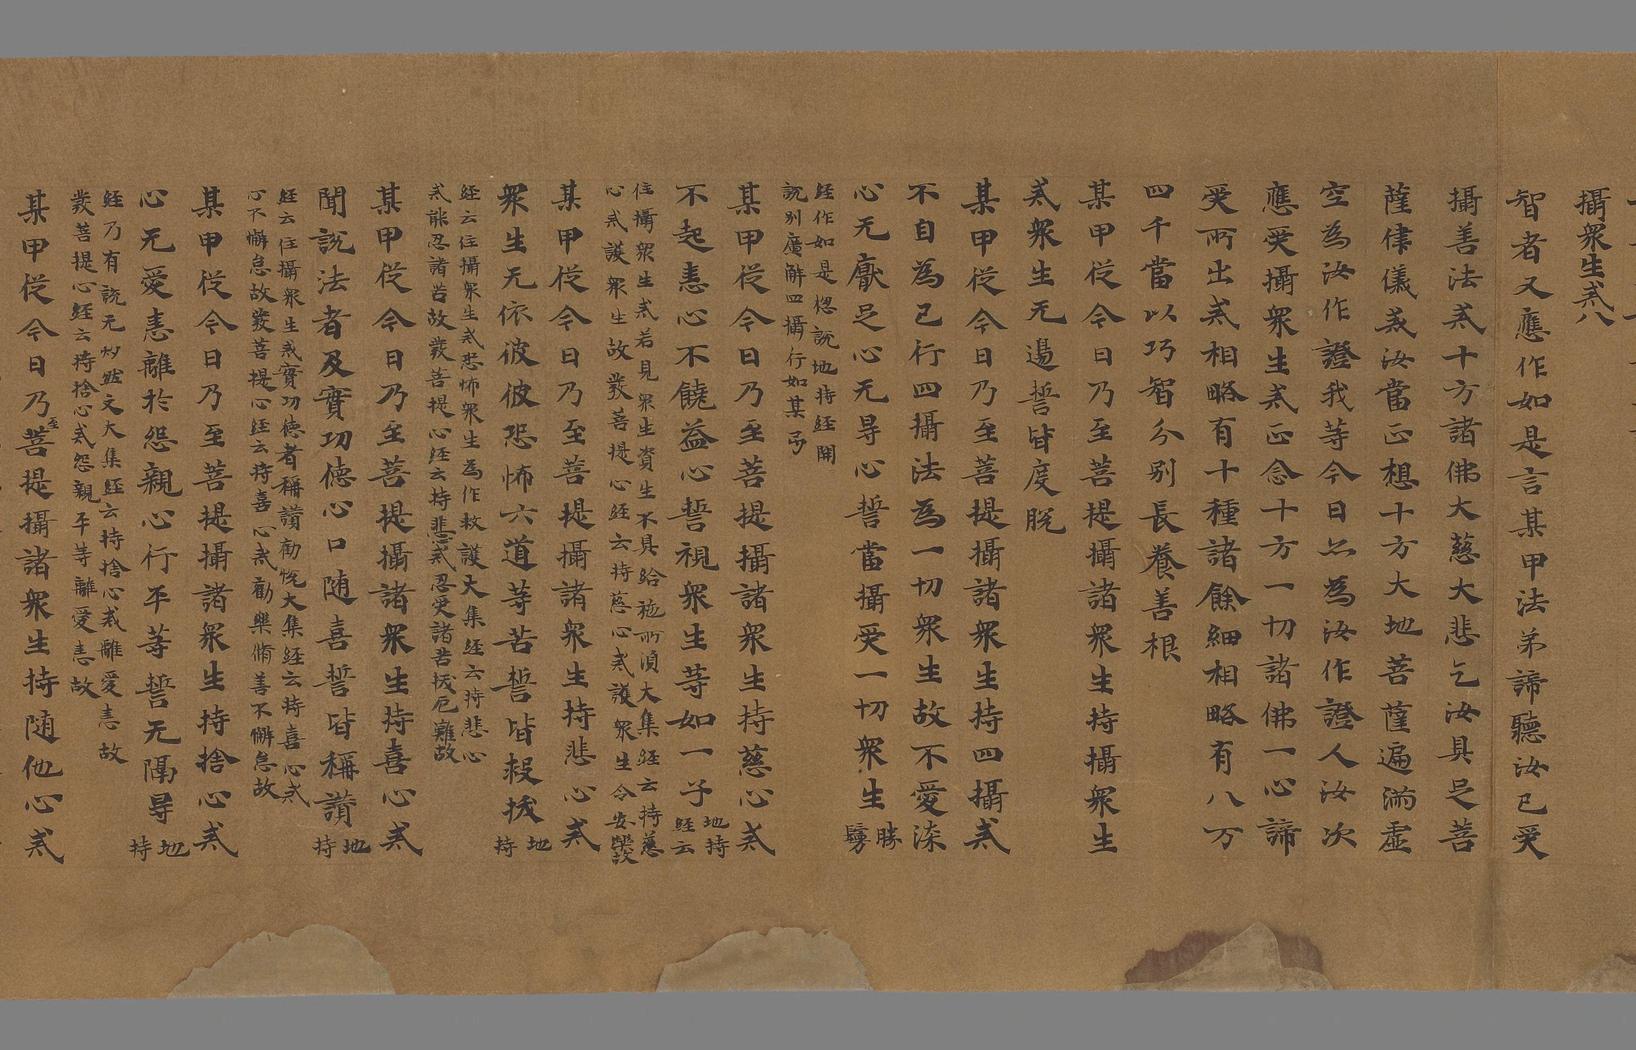 攝衆生戒八
智者又應作如是言某甲法弟諦聽汝已受
攝善法戒十方諸佛大慈大悲乞汝具足菩
薩律儀戒汝當正想十方大地菩薩遍滿虛
空為汝作證我等今日亦為汝作證人汝次
應受攝衆生戒正念十方一切諸佛一心諦
受所出戒相略有十種諸餘細相略有八万
四千當以巧智分别長養善根
某甲從今日乃至菩提攝諸衆生持攝衆生
戒衆生无邊誓皆度脫
某甲從今日乃至菩提攝諸衆生持四攝戒
不自為己行四攝法為一切衆生故不愛染
心无猒足心无㝵心誓當攝受一切衆生勝鬘
經作如是揔說地持經開
說别廣解四攝行如某
某甲從今日乃至菩提攝諸衆生持慈心戒
不起恚心不饒益心誓視衆生等如一子地持經云
住攝衆生戒若見衆生資生不具給施所須大集經云持慈
心戒護衆生故發菩提心經云持慈心戒護衆生令安樂故
某甲從今日乃至菩提攝諸衆生持悲心戒
衆生无依彼彼恐怖六道等苦誓皆救拔地持
經云住攝衆生戒恐怖衆生為作救護大集經云持悲心
戒能忍諸苦故發菩提心經云持悲戒忍受諸苦拔厄難故
某甲從今日乃至菩提攝諸衆生持喜心戒
聞說法者及實功德心口随喜誓皆稱讃地持
經云住攝衆生戒實功德者稱讃勸悅大集經云持喜心戒
心不懈怠故發菩提心經云持喜心戒勸樂脩善不懈怠故
某甲從今日乃至菩提攝諸衆生持捨心戒
心无愛恚離於怨親心行平等誓无隔㝵地持
經乃有說无炒然文大集經云持捨心戒離愛恚故
發菩提心經云持捨心戒怨親平等離愛恚故
某甲從今日乃至菩提攝諸衆生持随他心戒